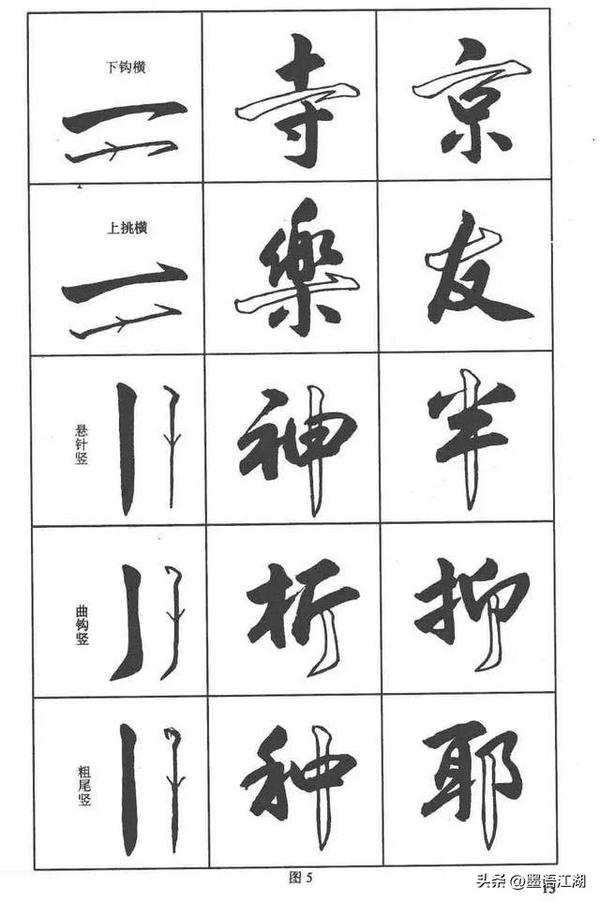 下钩横
寺
京
上挑横
樂
友
悬针竖
神
半
曲钩竖
折
抑
粗尾竖
种
耶
图5
头条@墨语江湖
13